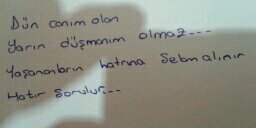 Dün canım olan
Yarın düşmanım olmaz...
Yaşananların hatrına Selam alınır
Hatır Sorulur...